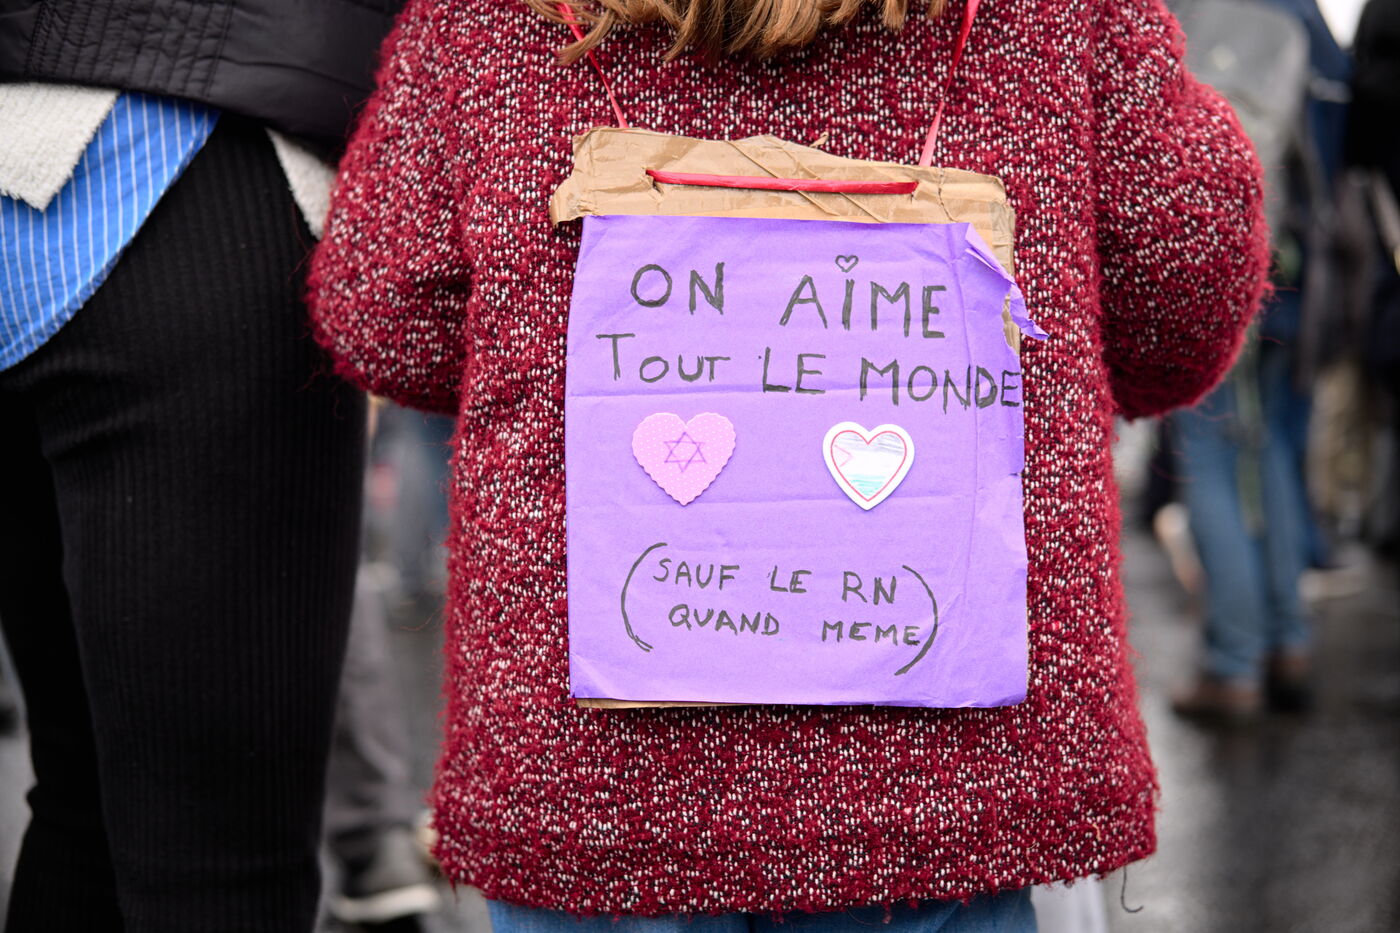 ON AiME
TOUT LE MONDE
(SAUF LE RN
QUAND MEME)